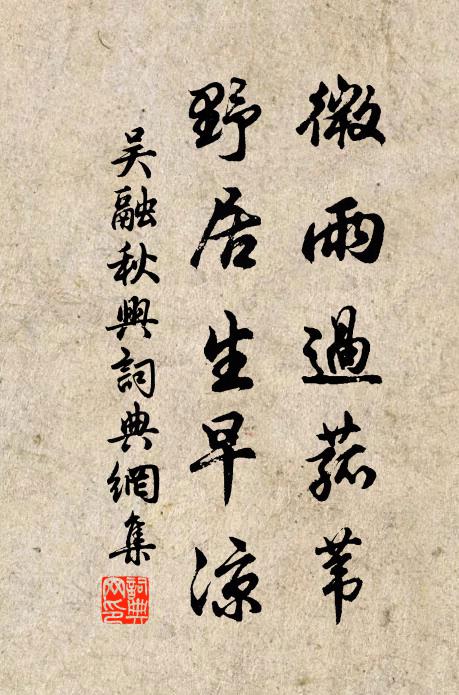 微雨過菰葦
野居生早涼
吳融秋興詞典網集
詞典網印